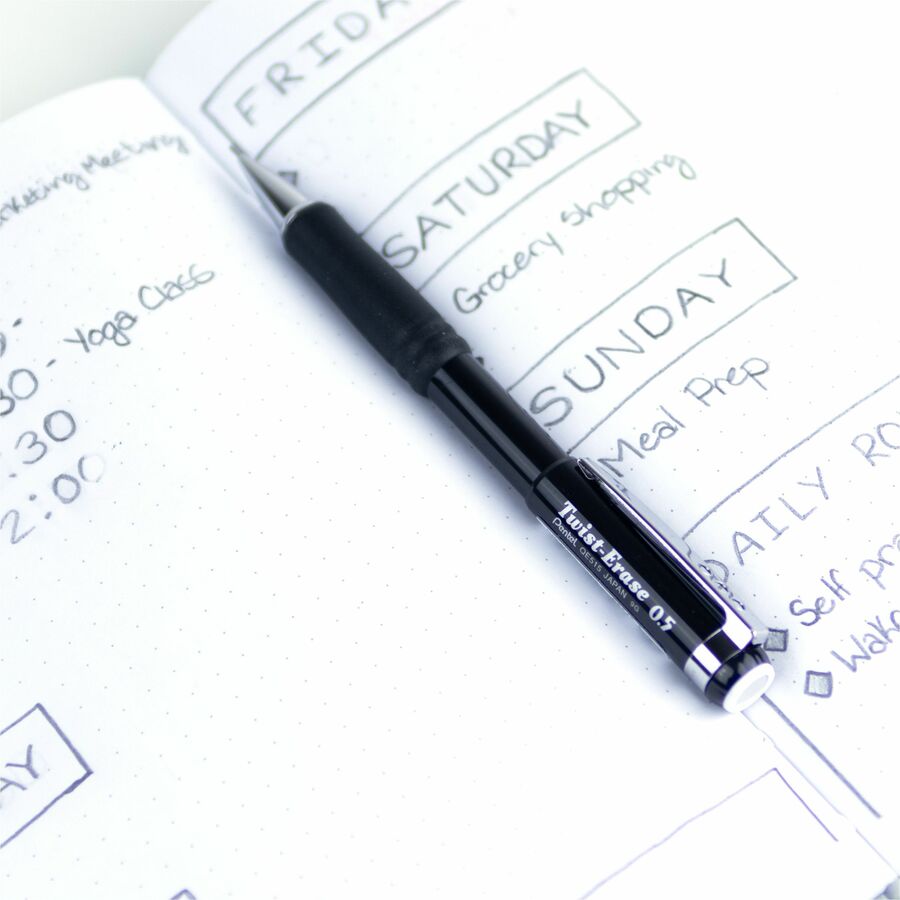 Meeting
Yoga Class
30
2:00
FRIDA
SATURDAY
Grocery shopping
SUNDAY
Meal Prep
DAILY RO
Self pra
Wake
Twist-Erase 0.5
Pentel QE515 JAPAN 9G
AY